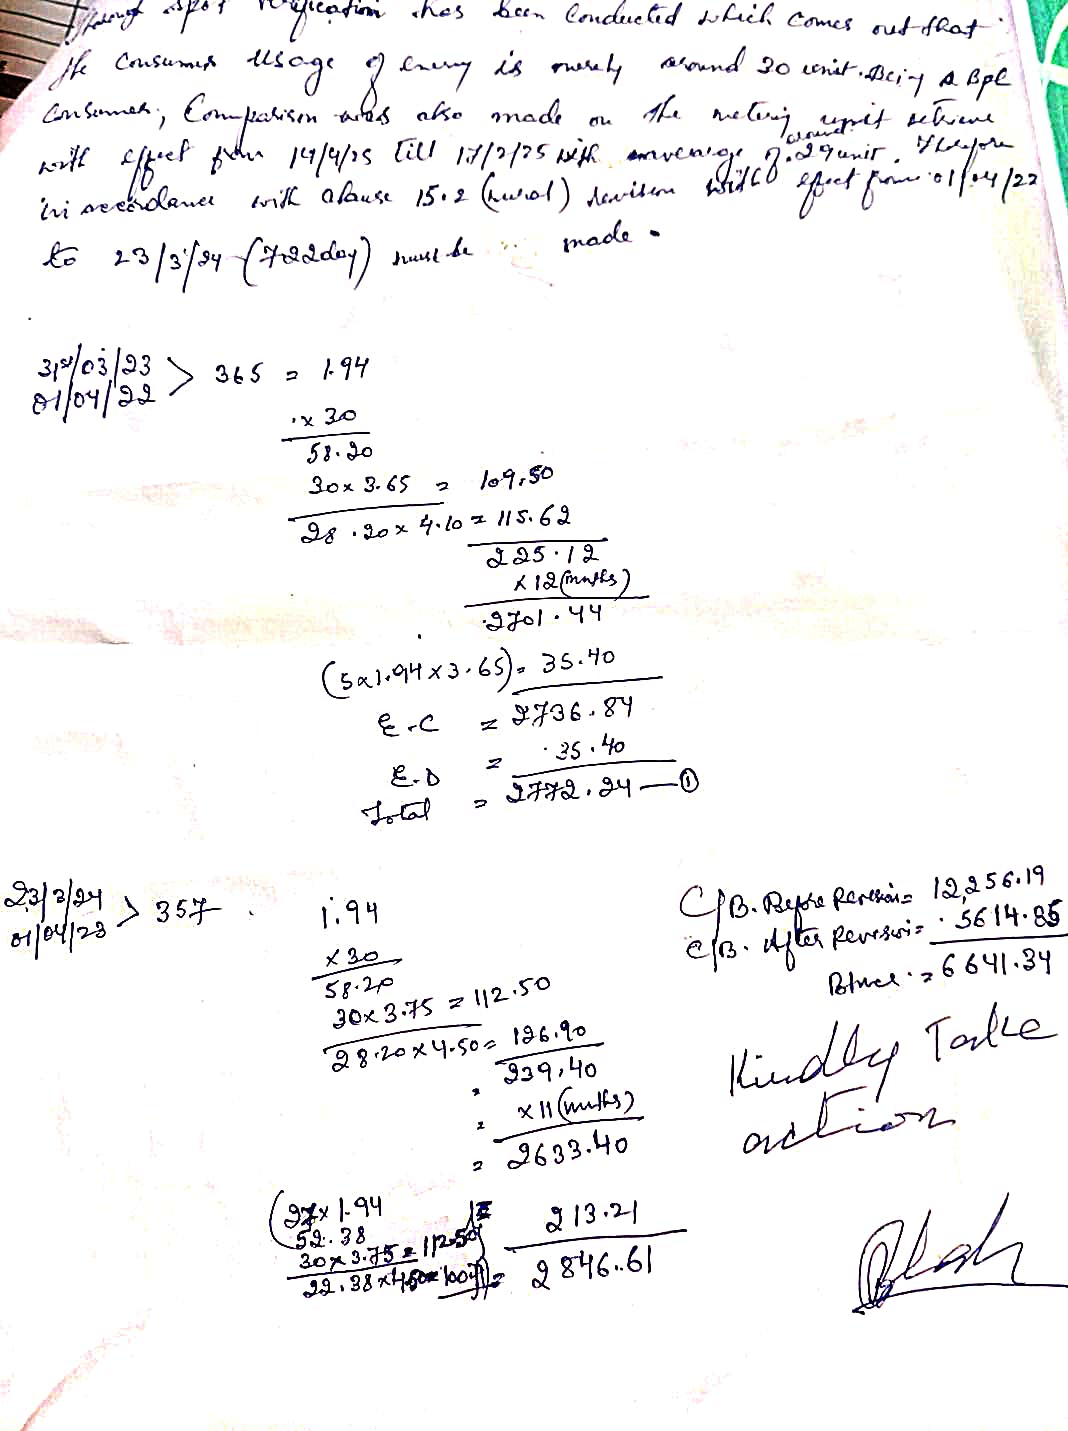 Through spot verification has been Conducted which comes out that
the Consumer Usage of energy is merely around 30 unit. Being a Bpl
Consumer, Comparison was also made on the metering unit
with effect from till 17/2/25 with of around 29 unit. Therefore
in accordance with clause 15.2 (rural) revision with effect from 01/04/22
to 23/3/24 (722day) must be made.
31st/03/23
01/04/22 > 365 = 1.94
x 30
58.20
30 x 3.65 = 109.50
28.20 x 4.10 = 115.62
225.12
x 12 (mnths)
2701.44
(5x1.94 x 3.65) = 35.40
E.C = 2736.84
E.D = 35.40
Total = 2772.24 — ①
23/3/24
01/04/23 > 357
1.94
x 30
58.20
30x 3.75 = 112.50
28.20 x 4.50 = 126.90
= 239.40
= x 11 (mnths)
= 2633.40
(27x 1.94
52.38
30 x 3.75 = 112.50
22.38 x 4.50 = 100.71) =
= 213.21
2846.61
C/B. Before Revision = 12,256.19
C/B. After Revision = 5614.85
= 6641.34
Kindly Take
action